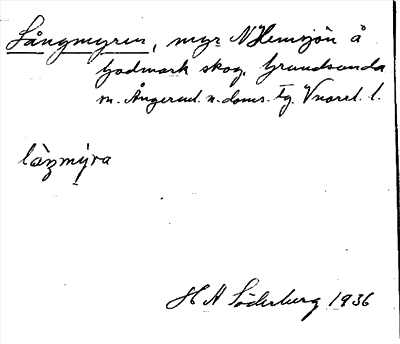 Långmyren, myr N Hemsjön å
Godmark skog. Grundsunda
sn. Ångerml. n. doms. tg. Vnorrl. l.
låŋmýra
H A Söderberg 1936